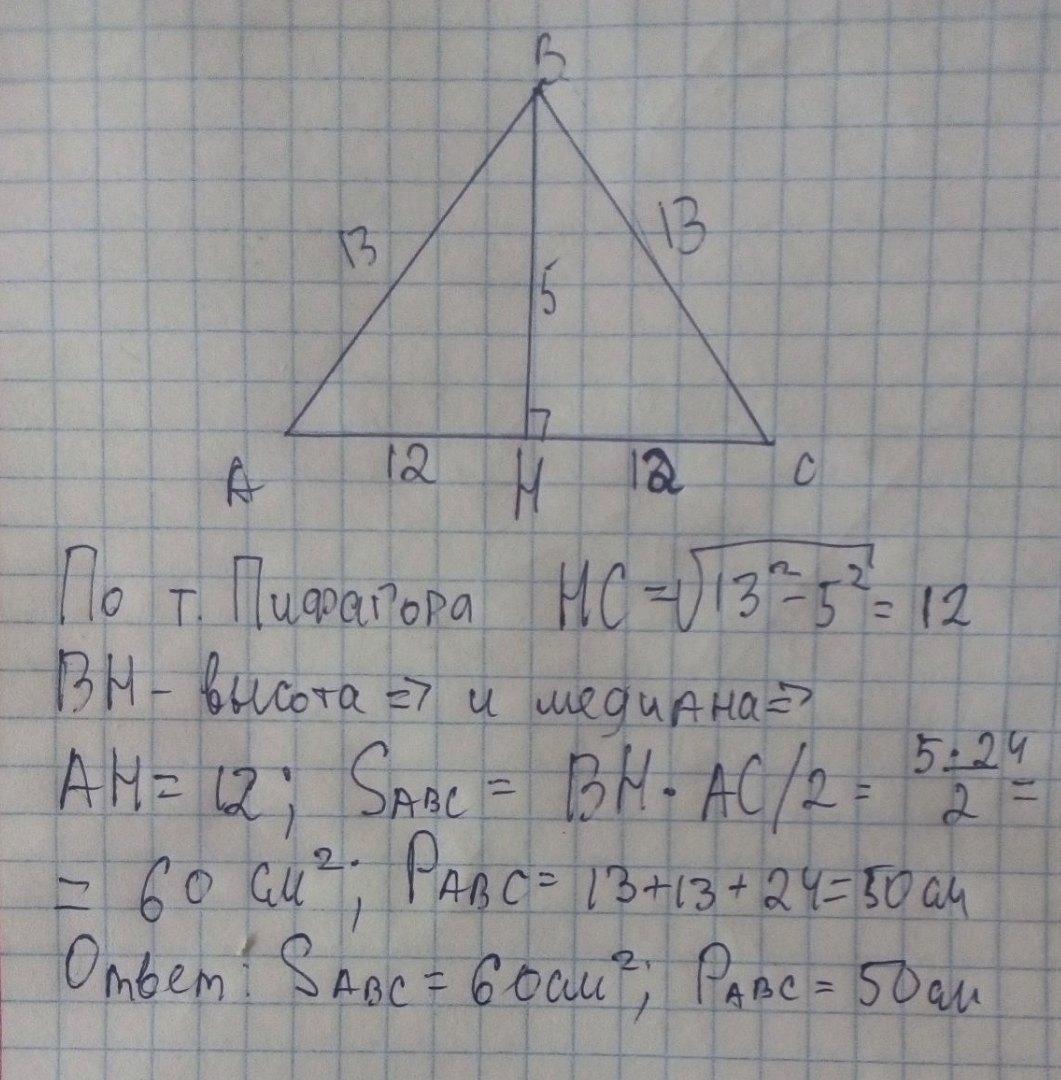 B
13
13
5
A
12
H
12
C
По т. Пифагора HC = √13² - 5² = 12
BH - высота => и медиана =>
AH = 12; SABC = BH · AC/2 = 5·24/2 =
= 60 см²; PABC = 13+13+24=50см
Ответ: SABC = 60см²; PABC = 50см